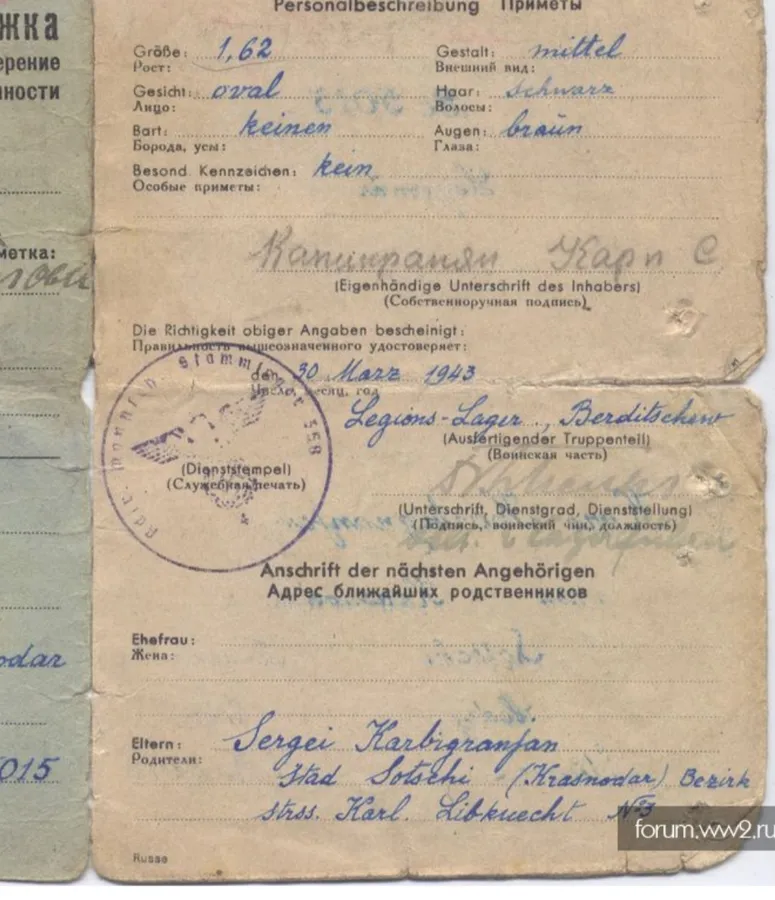 Personalbeschreibung Приметы
жка
Größe: 1,62 Gestalt: mittel
ерение
Рост: Внешний вид:
нности
Gesicht: oval Haar: schwarz
Лицо: Волосы:
Bart: keinen Augen: braun
Борода, усы: Глаза:
Besond Kennzeichen: kein
Особые приметы:
метка:
Карп С
(Eigenhändige Unterschrift des Inhabers)
(Собственноручная подпись)
Die Richtigkeit obiger Angaben bescheinigt:
Правильность вышеозначенного удостоверяет:
den 30 März 1943
Число, месяц, год
Stammlager 358
Legions-Lager, Berditschew
(Ausfertigender Truppenteil)
(Воинская часть)
(Dienststempel)
(Служебная печать)
4
(Unterschrift, Dienstgrad, Dienststellung)
(Подпись, воинский чин, должность)
Anschrift der nächsten Angehörigen
Адрес ближайших родственников
Ehefrau:
Жена:
odar
Eltern: Sergei Karbigranjan
Родители:
Stad Sotschi (Krasnodar) Bezirk
015
strss. Karl. Libknecht № 3
Russe
forum.ww2.ru